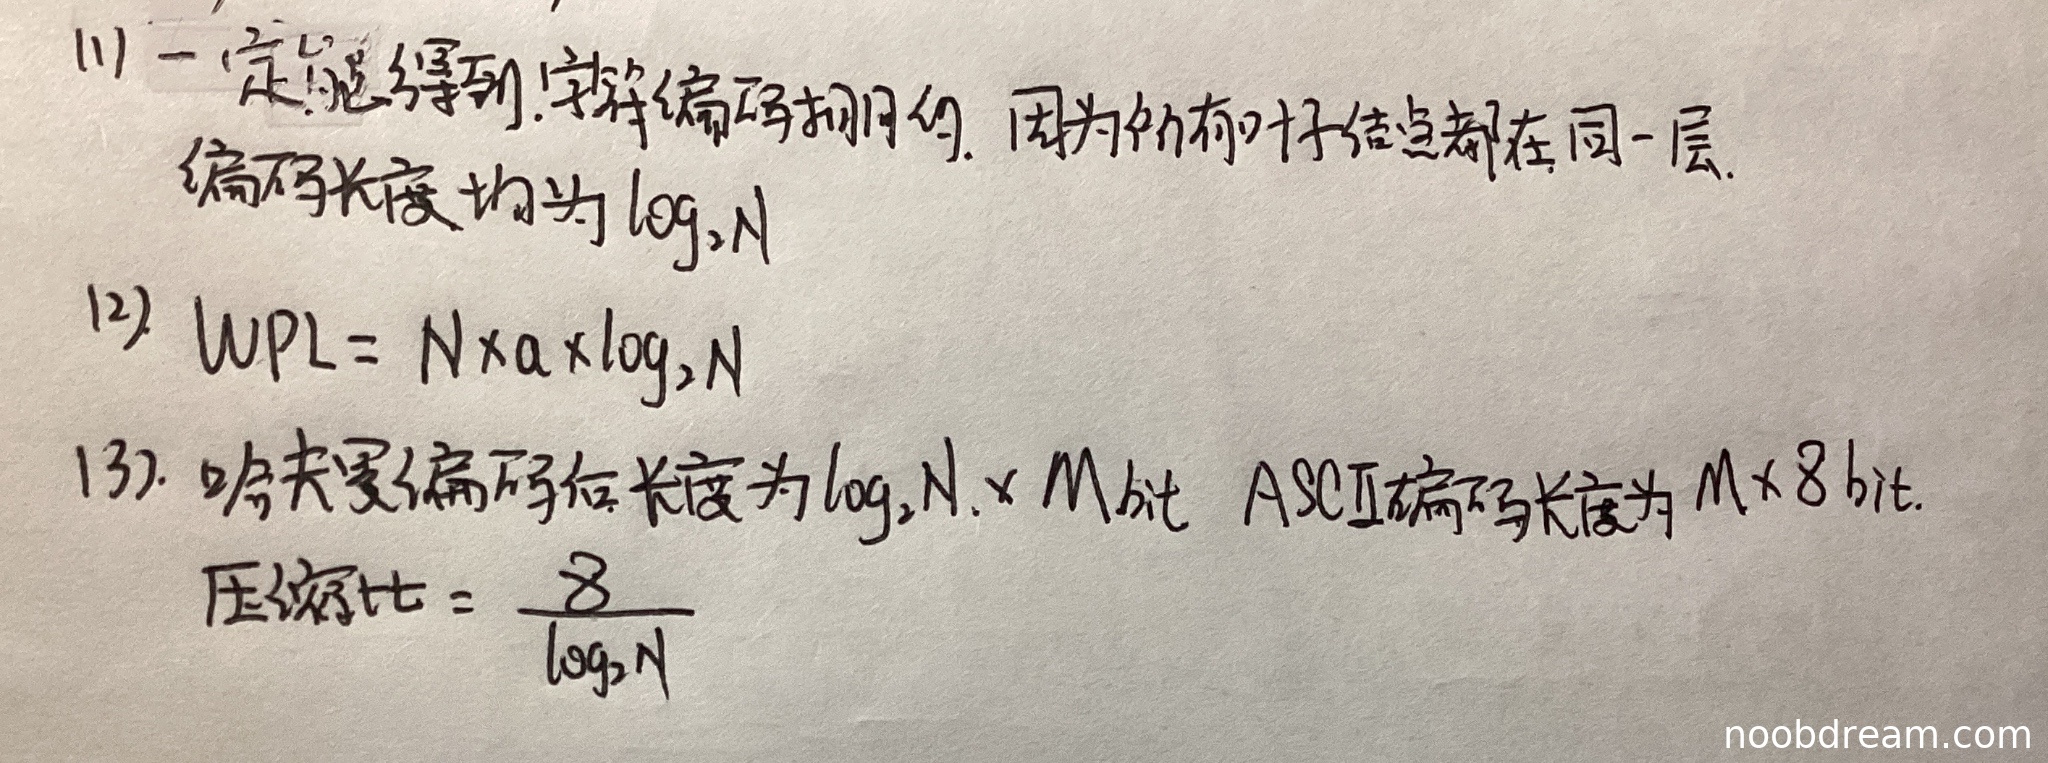 (1) 一定能得到.字符编码相同的. 因为所有叶子结点都在同一层.
编码长度均为 log₂N
(2). WPL = N×a×log₂N
(3). 哈夫曼编码后长度为 log₂N.× M bit ASCII编码长度为 M×8 bit.
压缩比 = 8/log₂N
noobdream.com